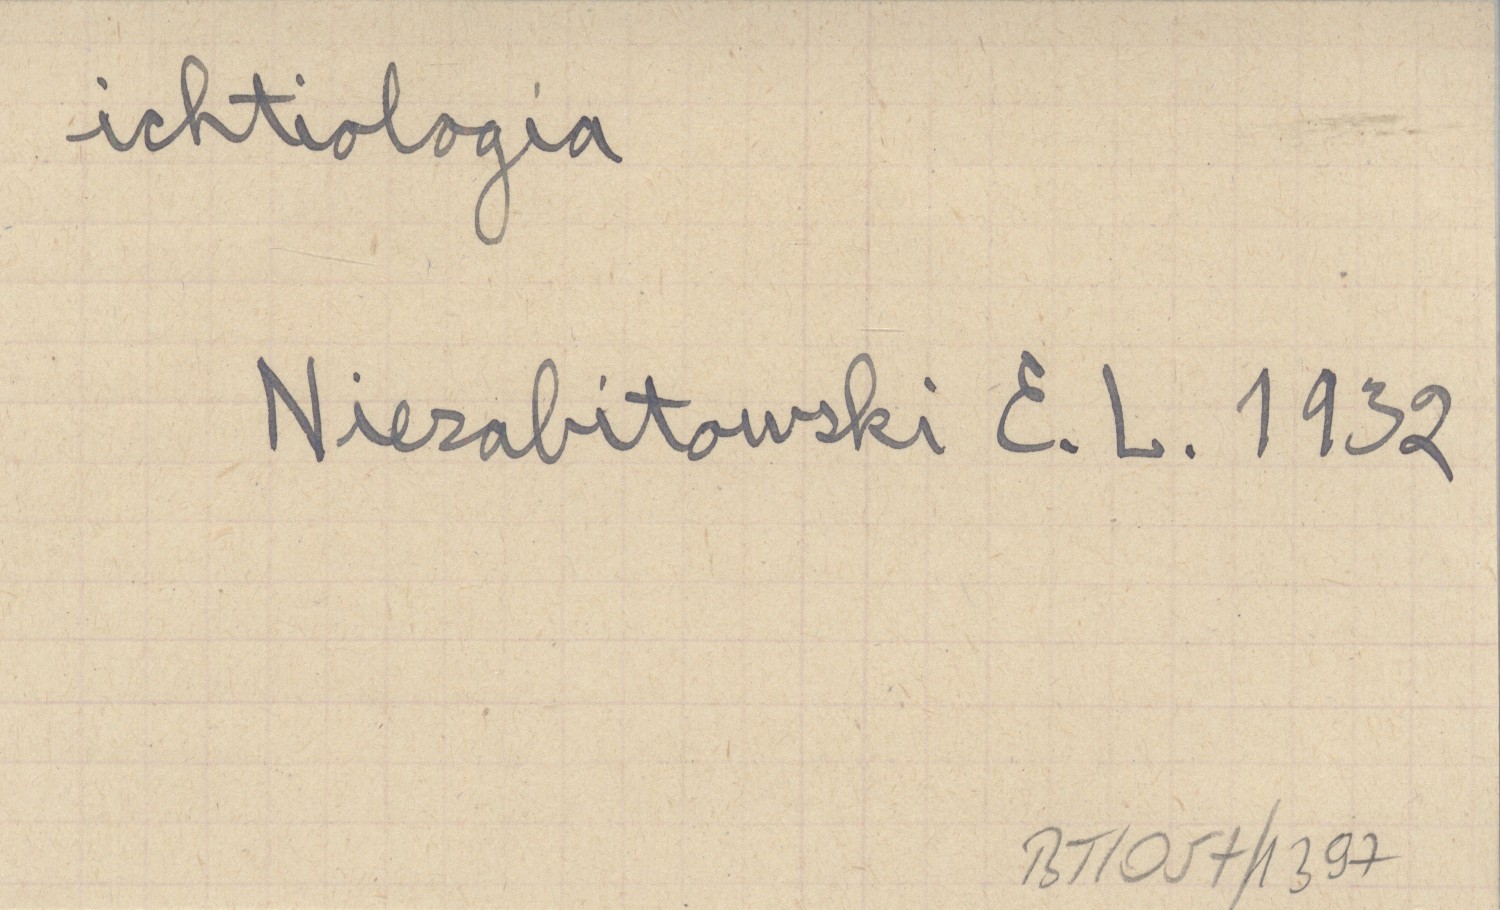 ichtiologia
Niezabitowski E. L. 1932
BT/057/1397